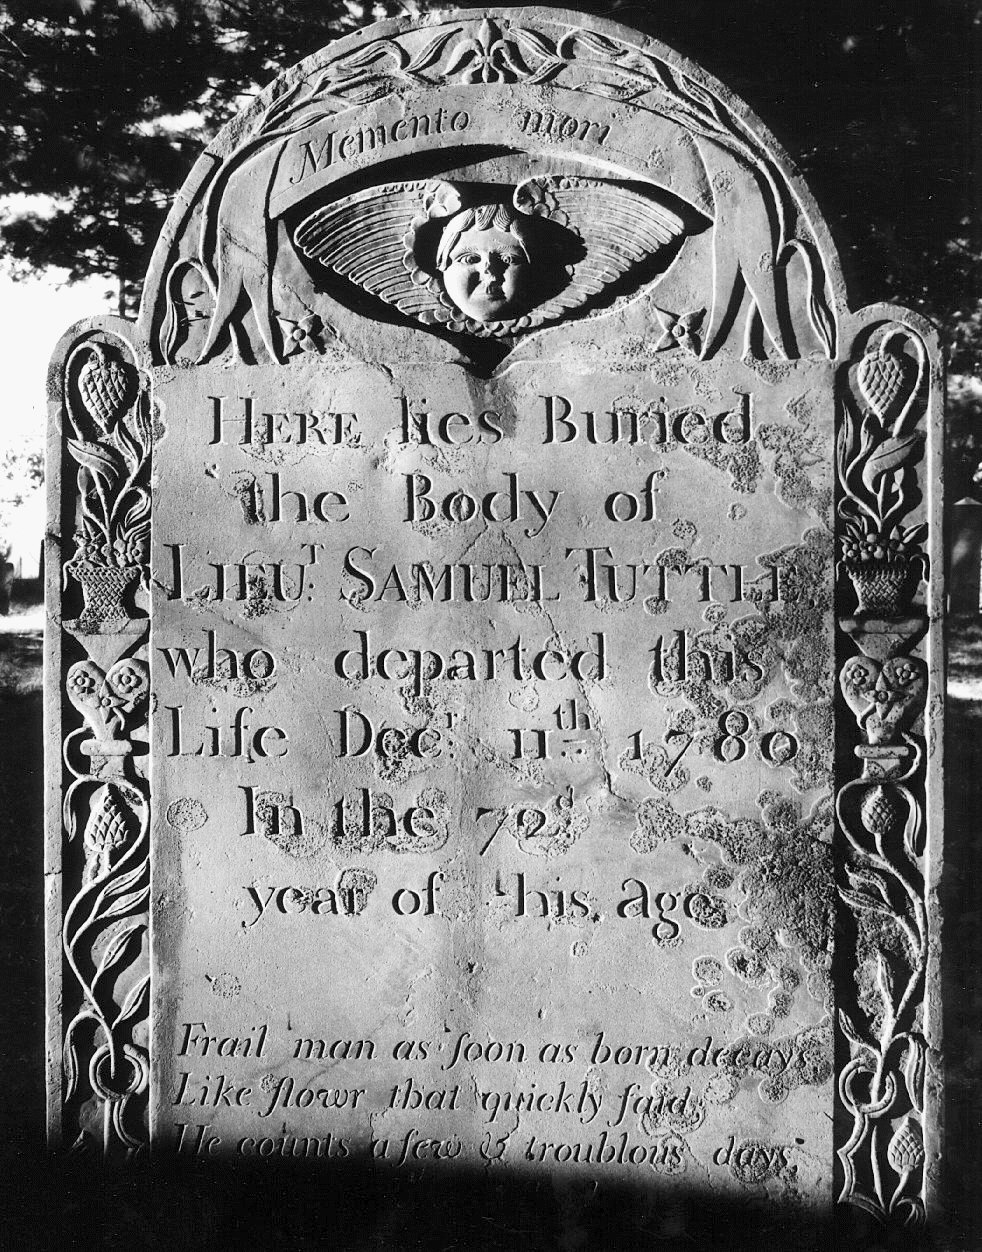 Memento mori
HERE lies Buried
the Body of
LIEUᵗ. SAMUEL TUTTLE
who departed this
Life Decʳ. 11ᵗʰ 1780
In the 72ᵈ
year of his age
Frail man as ſoon as born decays
Like flowr that quickly fade
He counts a few & troublous days